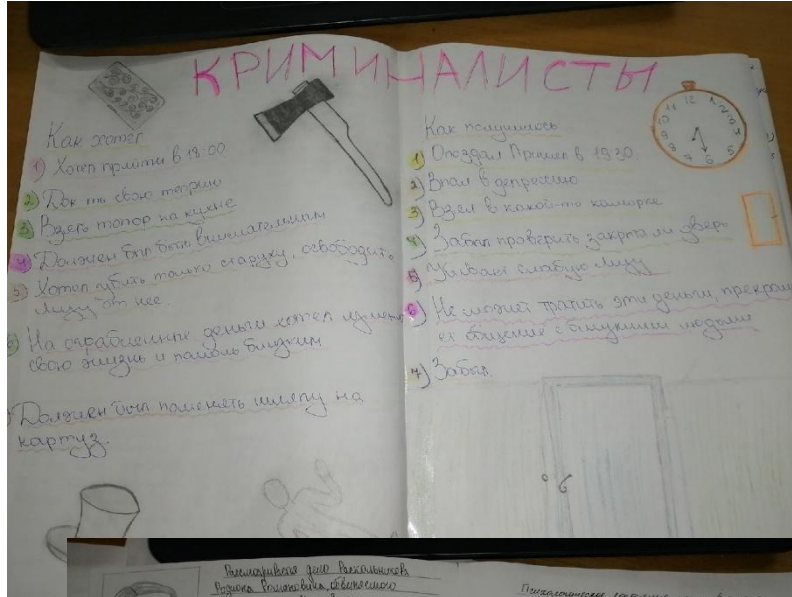 КРИМИНАЛИСТЫ
Как хотел
1) Хотел прийти в 18:00
2) Док-ть свою теорию
3) Взять топор на кухне
4) Должен был быть внимательным
5) Хотел убить только старуху, освободить
Лизу от нее.
6) На ограбленные деньги хотел
свою жизнь и близким
Должен был поменять шляпу на
картуз.
Как получилось
1) Опоздал Пришел в 19:30
2) Впал в депрессию
3) Взял в какой-то каморке
4) Забыл проверить закрыта ли дверь
5) Убивает слабую Лизу
6) Не может тратить эти деньги, прекрати
с близкими людьми
7) Забыл
12
11
10
9
8
7
6
5
Рассматривается дело Раскольникова
Родиона Романовича, обвиняемого